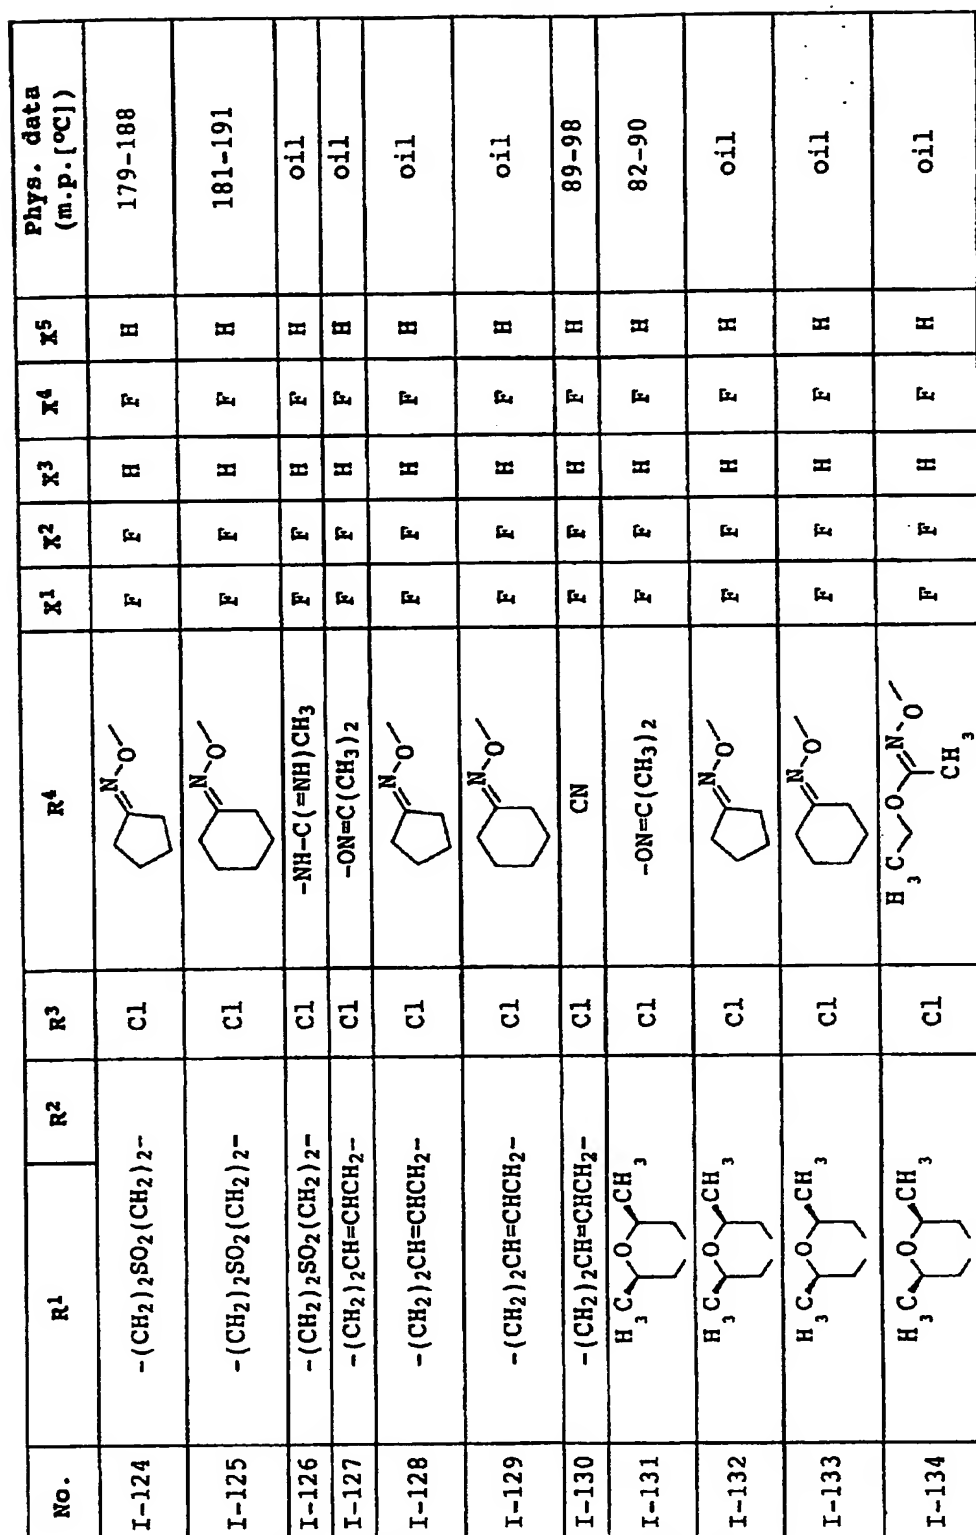 No. R1 R2 R3 R4 X1 X2 X3 X4 X5 Phys. data
(m.p.[°C])
I-124 -(CH2)2SO2(CH2)2- Cl N O F F H F H 179-188
I-125 -(CH2)2SO2(CH2)2- Cl N O F F H F H 181-191
I-126 -(CH2)2SO2(CH2)2- Cl -NH-C(=NH)CH3 F F H F H oil
I-127 -(CH2)2CH=CHCH2- Cl -ON=C(CH3)2 F F H F H oil
I-128 -(CH2)2CH=CHCH2- Cl N O F F H F H oil
I-129 -(CH2)2CH=CHCH2- Cl N O F F H F H oil
I-130 -(CH2)2CH=CHCH2- Cl CN F F H F H 89-98
I-131 H3C O CH3 Cl -ON=C(CH3)2 F F H F H 82-90
I-132 H3C O CH3 Cl N O F F H F H oil
I-133 H3C O CH3 Cl N O F F H F H oil
I-134 H3C O CH3 Cl H3C O N O CH3 F F H F H oil